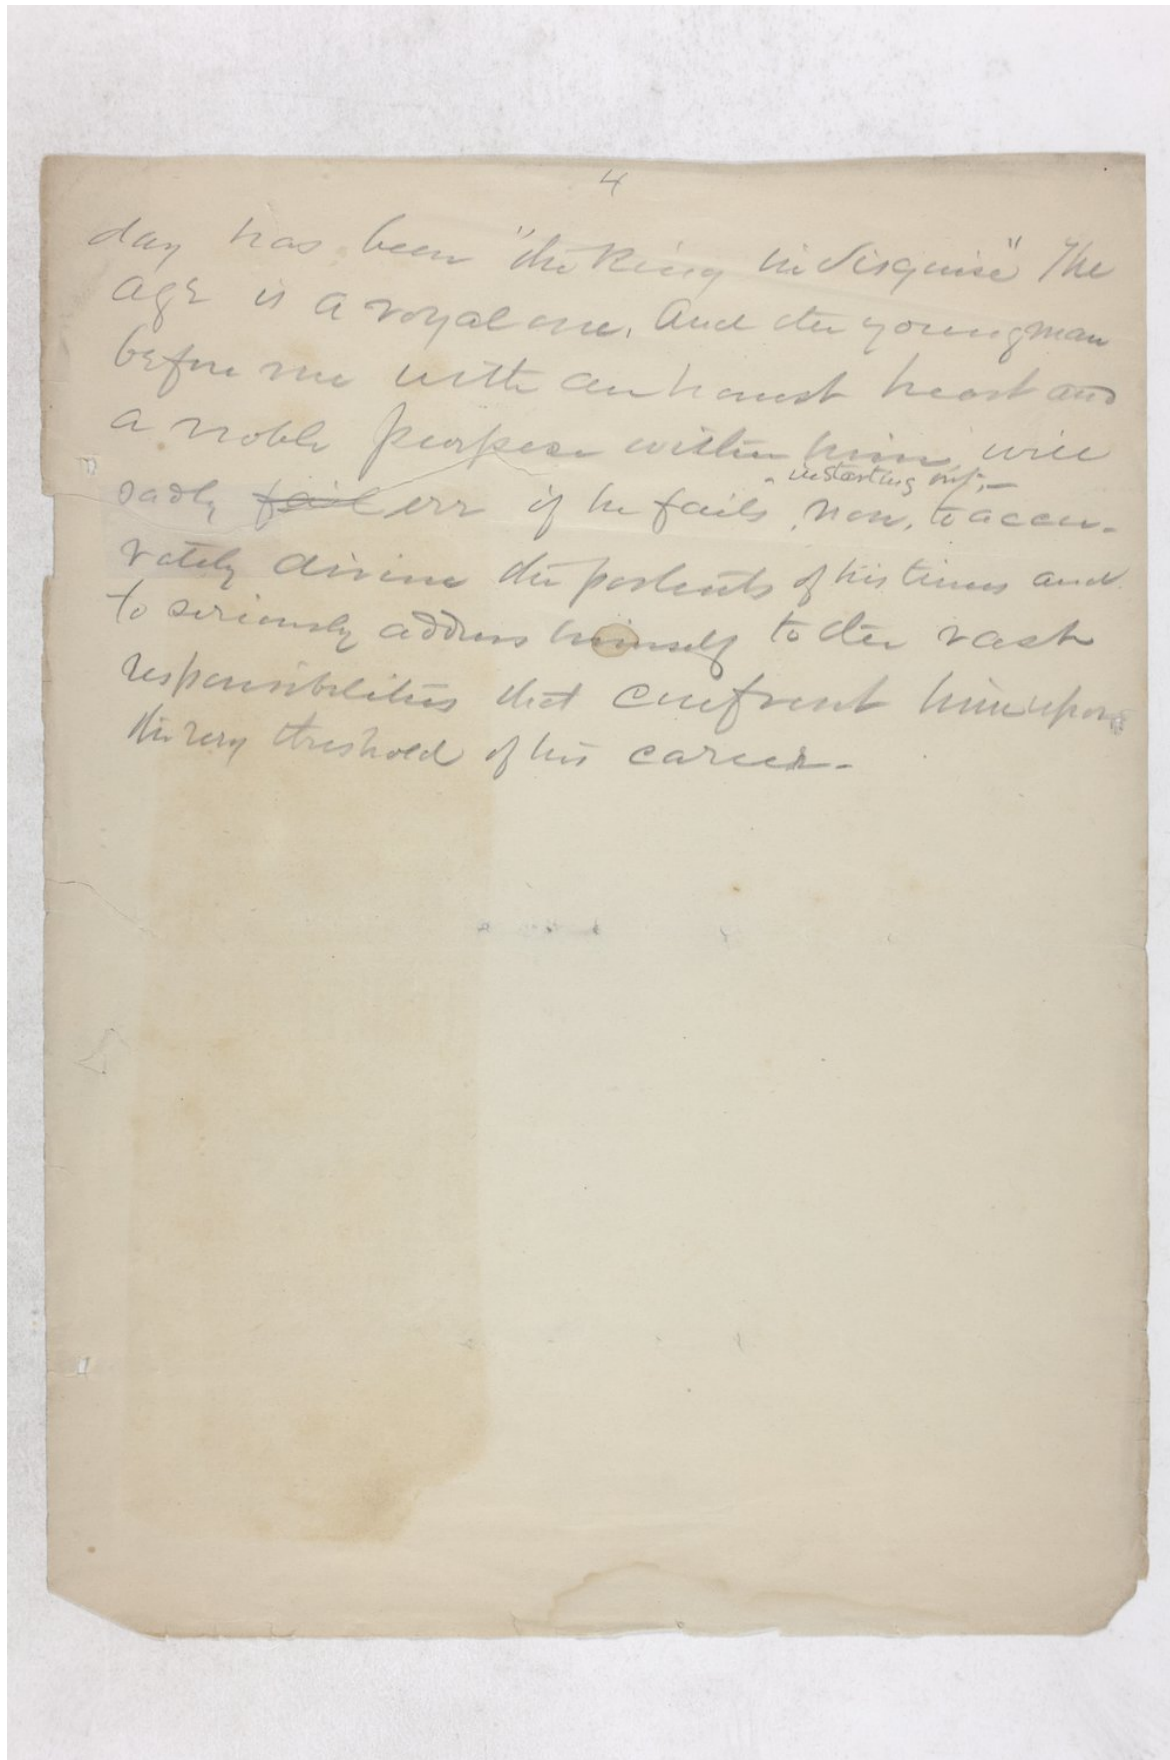 4
day has been "the King in disguise" The
age is a royal one. And the young man
before me with an honest heart and
a noble purpose within him, will
in starting out,—
sadly fail err if he fails, now, to accu-
rately divine the portents of his times and
to seriously address himself to the vast
responsibilities that confront him upon
the very threshold of his career.-